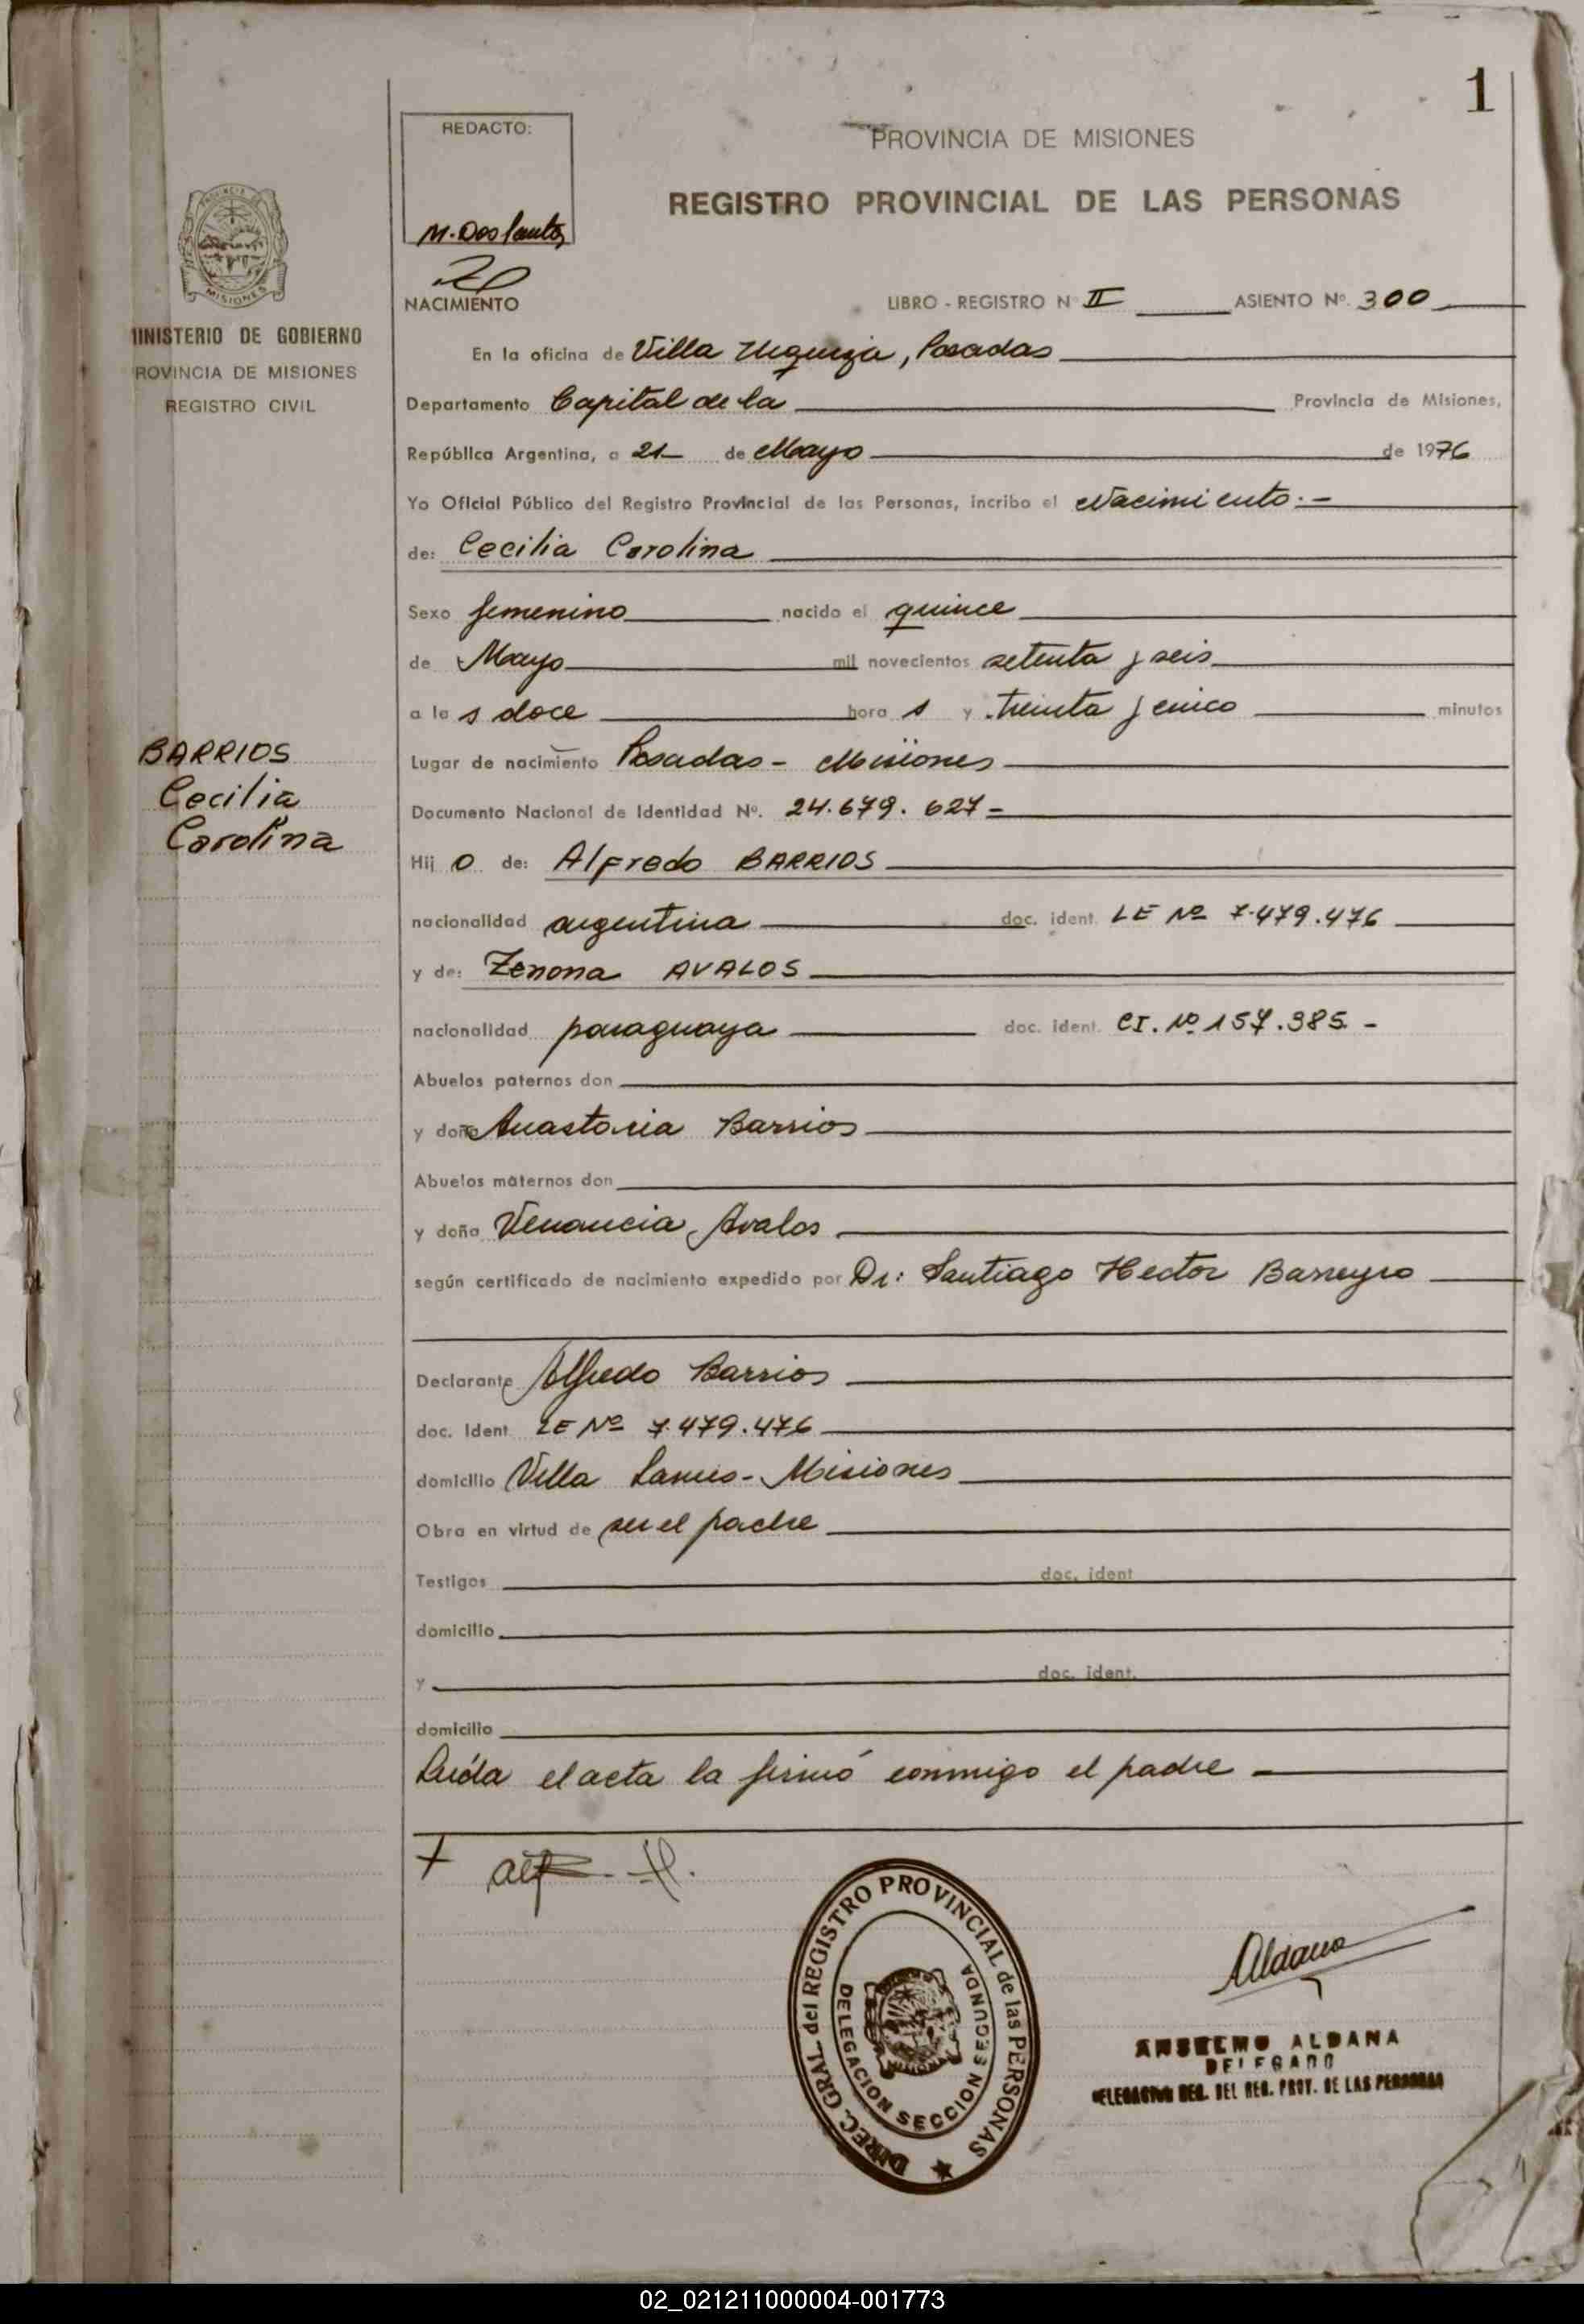 1
REDACTO:
M. Dos Santos
PROVINCIA DE MISIONES
REGISTRO PROVINCIAL DE LAS PERSONAS
PROVINCIA
MISIONES
MINISTERIO DE GOBIERNO
PROVINCIA DE MISIONES
REGISTRO CIVIL
NACIMIENTO
LIBRO - REGISTRO Nº II ASIENTO Nº. 300
En la oficina de Villa Urquiza, Posadas
Departamento Capital de la Provincia de Misiones,
República Argentina, a 21 de Mayo de 1976
Yo Oficial Público del Registro Provincial de las Personas, incribo el Nacimiento.-
de: Cecilia Carolina
Sexo femenino nacido el quince
de Mayo mil novecientos setenta y seis
a la s doce hora s y treinta y cinco minutos
BARRIOS
Cecilia
Carolina
Lugar de nacimiento Posadas - Misiones
Documento Nacional de Identidad Nº. 24.679.627-
Hij o de: Alfredo BARRIOS
nacionalidad argentina doc. ident. LE Nº 7.479.476
y de: Zenona AVALOS
nacionalidad paraguaya doc. ident. CI. Nº 157.385.-
Abuelos paternos don
y doña Anastasia Barrios
Abuelos maternos don
y doña Venancia Avalos
según certificado de nacimiento expedido por Dr: Santiago Hector Barreyro
Declarante Alfredo Barrios
doc. Ident. LE Nº 7.479.476
domicilio Villa Lanus - Misiones
Obra en virtud de ser el padre
Testigos doc. ident
domicilio
y doc. ident.
domicilio
Leída el acta la firmó conmigo el padre
DIREC. GRAL. del REGISTRO PROVINCIAL de las PERSONAS
DELEGACION SECCION SEGUNDA
Aldana
ANSELMO ALDANA
DELEGADO
DELEGACION REG. DEL REG. PROV. DE LAS PERSONAS
02_021211000004-001773